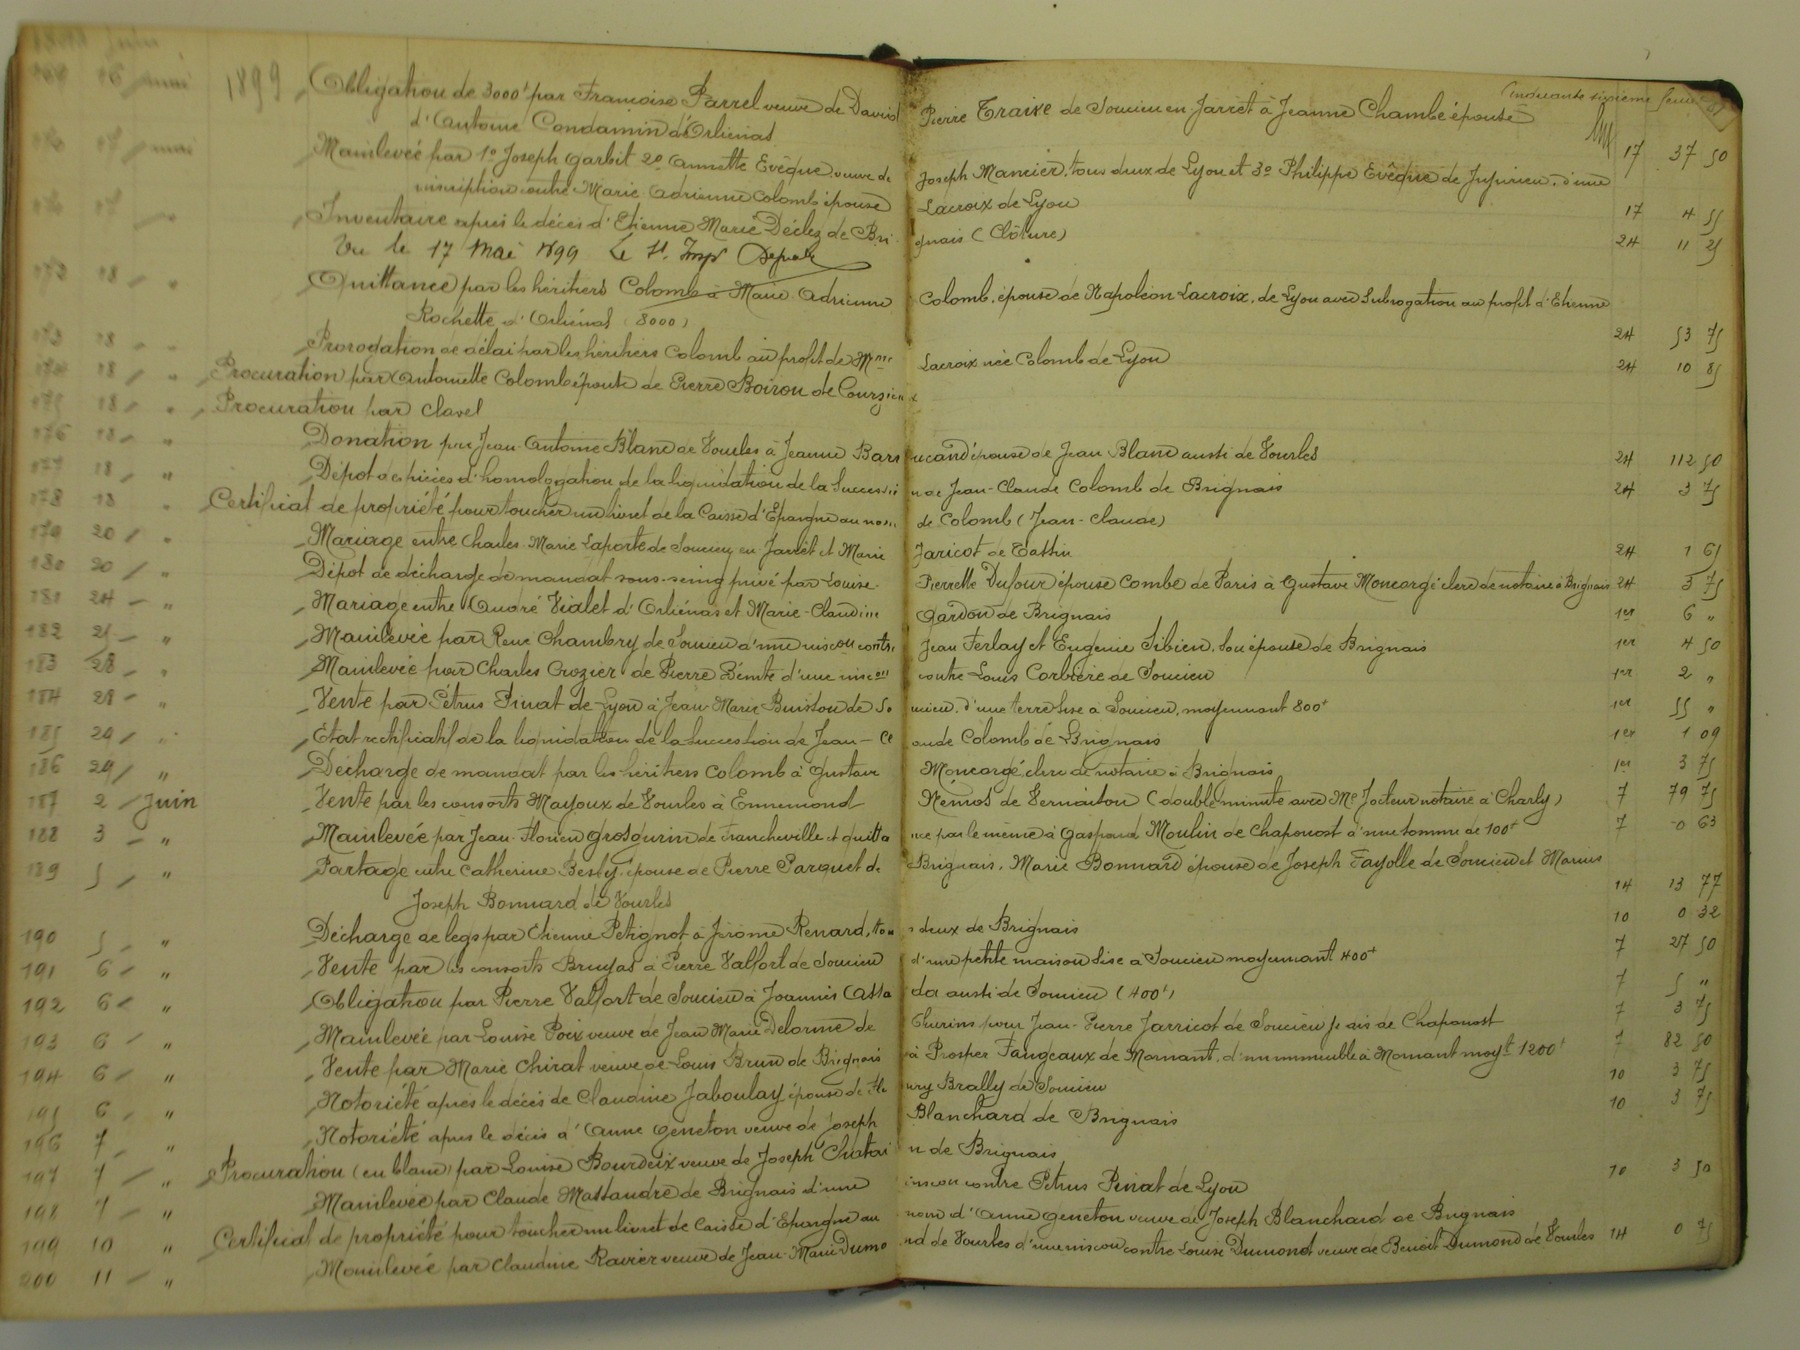 Cinquante sixième
1899 Obligation de 3000f par Françoise Parrel veuve de David Pierre Traixe de Soucieu en Jarret à Jeanne Chambé épouse
d'Antoine Condamin d'Orliénas 17 37 50
Mainlevée par 1o Joseph Garbit 2o Annette Evêque, veuve de Joseph Mancier, tous deux de Lyon et 3o Philippe Evêque de Jujurieu, d'une
inscription contre Marie Adrienne Colomb épouse Lacroix de Lyon 17 4 55
Inventaire après le décès d'Etienne Marie Déclez de Brignais (Clôture) 24 11 25
Vu le 17 Mai 1899 Le
173 18 " Quittance par les héritiers Colomb à Marie Adrienne Colomb, épouse de Napoléon Lacroix, de Lyon avec Subrogation au profit d'Etienne
Rochette d'Orliénas (8000) 24 53 75
18 " Prorogation de délai par les héritiers Colomb au profit de Mme Lacroix née Colomb de Lyon 24 10 85
18 " Procuration par Antoinette Colomb épouse de Pierre Boiron de Courzieux
175 18 " Procuration par Clavel
176 18 " Donation par Jean-Antoine Blanc de Vourles à Jeanne Barrucand épouse de Jean Blanc aussi de Vourles 24 112 50
177 18 " Dépôt de pièces d'homologation de la liquidation de la Succession de Jean-Claude Colomb de Brignais 24 3 75
178 18 " Certificat de propriété pour toucher un livret de la Caisse d'Epargne au nom de Colomb (Jean-Claude)
179 20 " Mariage entre Charles Marie Laporte de Soucieu en Jarret et Marie Jaricot de Tassin 24 1 65
180 20 " Dépôt de décharge de mandat sous-seing privé par Louise-Pierrette Dufour épouse Combe de Paris à Gustave Moncorgé clerc de notaire à Brignais 24 3 75
181 24 " Mariage entre André Vialet d'Orliénas et Marie-Claudine Gardon de Brignais 1er 6 "
182 25 " Mainlevée par René Chambry de Soucieu d'une inscon contre Jean Ferlay et Eugénie Sibien, son épouse de Brignais 1er 4 50
183 28 " Mainlevée par Charles Crozier de Pierre Bénite d'une inscon contre Louis Corbière de Soucieu 1er 2 "
184 28 " Vente par Pétrus Pinat de Lyon à Jean-Marie Buisson de Soucieu, d'une terre sise à Soucieu, moyennant 800f 1er 55 "
185 29 " Etat rectificatif de la liquidation de la Succession de Jean-Claude Colomb de Brignais 1er 1 09
186 29 " Décharge de mandat par les héritiers Colomb à Gustave Moncorgé clerc de notaire à Brignais 1er 3 75
187 2 Juin Vente par les consorts Mayoux de Vourles à Ennemond Nemos de Vernaison (double minute avec Me Jocteur notaire à Charly) 7 79 75
188 3 " Mainlevée par Jean-Florieu Grosgurin de Francheville et quittance par le même à Gaspard Moulin de Chaponost d'une somme de 100f 7 0 63
189 5 " Partage entre Catherine Besly épouse de Pierre Parquet de Brignais, Marie Bonnard épouse de Joseph Fayolle de Soucieu et Marius
Joseph Bonnard de Vourles 14 13 77
190 5 " Décharge de legs par Etienne Petignot à Jérôme Renard, tous deux de Brignais 10 0 32
191 6 " Vente par les consorts Bruyas à Pierre Valfort de Soucieu d'une petite maison sise à Soucieu moyennant 400f 7 27 50
192 6 " Obligation par Pierre Valfort de Soucieu à Joannis Assada aussi de Soucieu (400f) 7 5 "
193 6 " Mainlevée par Louise Poix veuve de Jean Marie Delorme de Thurins pour Jean-Pierre Jarricot de Soucieu jadis de Chaponost 7 3 75
194 6 " Vente par Marie Chirat veuve de Louis Brun de Brignais à Prosper Faugeaux de Mornant, d'un immeuble à Mornant moyt 1200f 7 82 50
195 6 " Notoriété après le décès de Claudine Jaboulay épouse de Fleury Brally de Soucieu 10 3 75
196 7 " Notoriété après le décès d'Anne Geneton veuve de Joseph Blanchard de Brignais 10 3 75
197 7 " Procuration (en blanc) par Louise Bourdeix veuve de Joseph Chatain de Brignais
198 7 " Mainlevée par Claude Massaudre de Brignais d'une inscon contre Petrus Pinat de Lyon 10 3 50
199 10 " Certificat de propriété pour toucher un livret de Caisse d'Epargne au nom d'Anne Geneton veuve de Joseph Blanchard de Brignais
200 11 " Mainlevée par Claudine Ravier veuve de Jean-Marie Dumond de Vourles d'une inscon contre Louise Dumond veuve de Benoit Dumond de Vourles 14 0 75